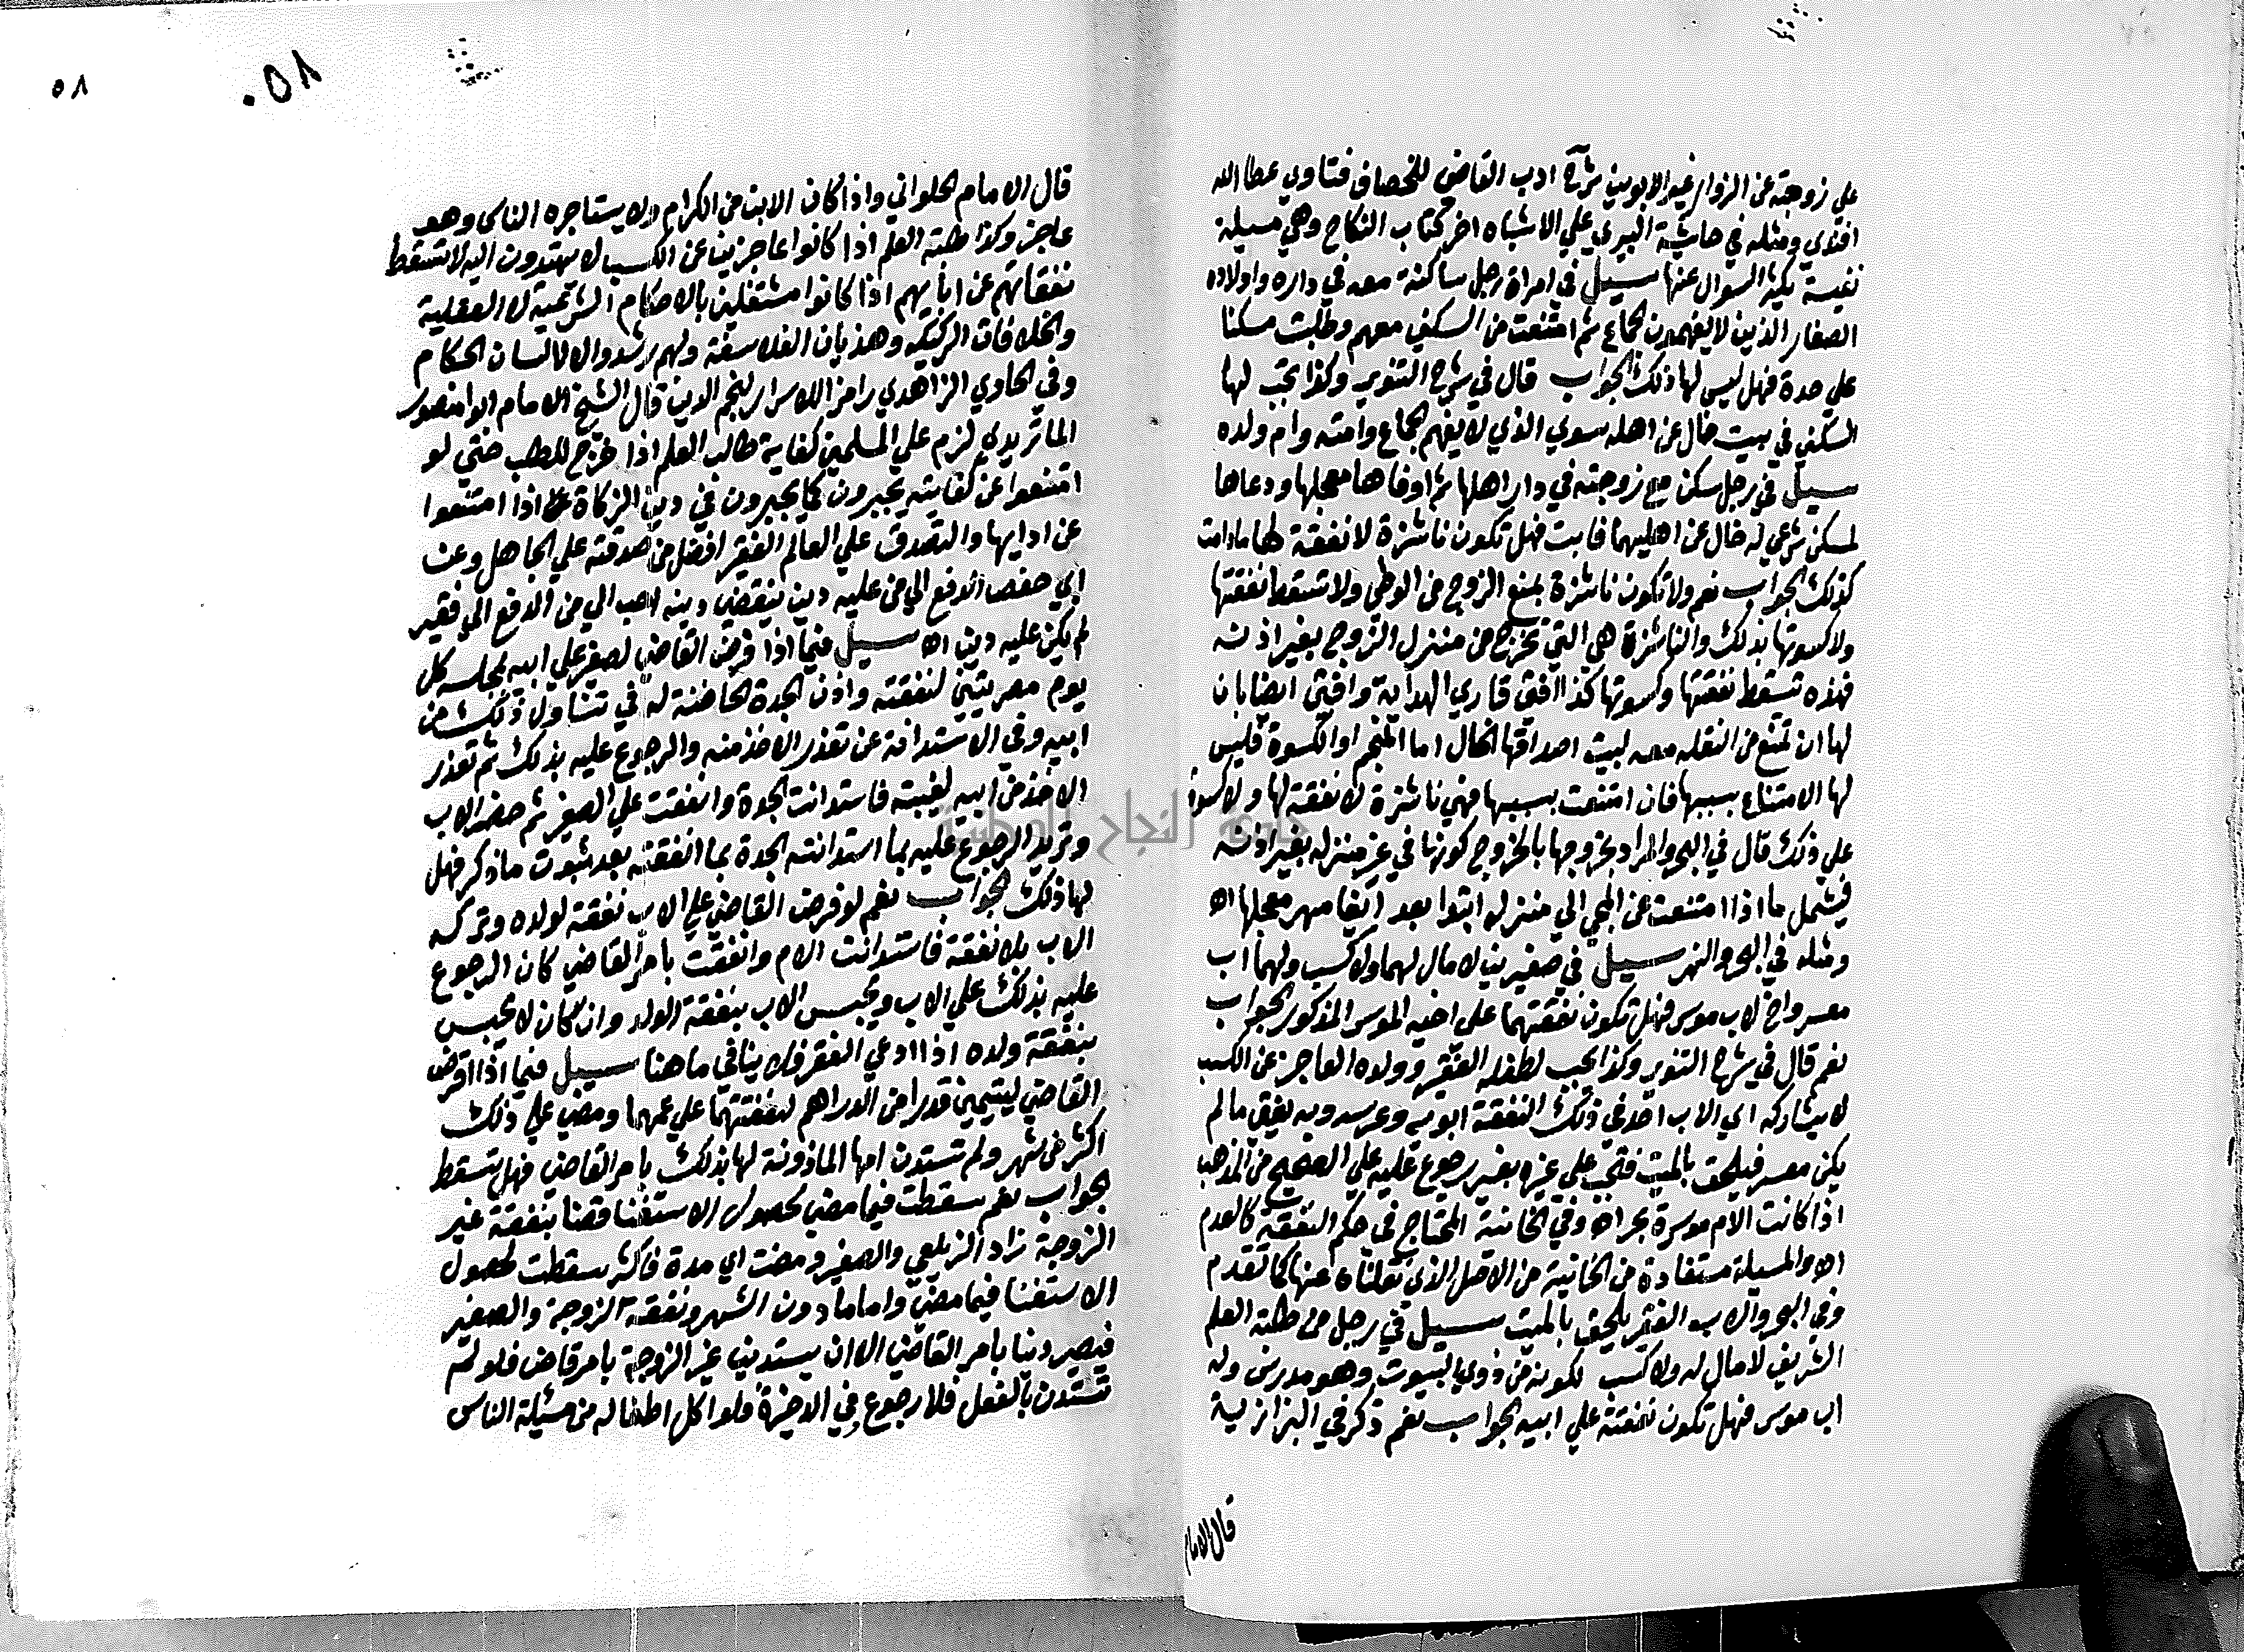 علي زوجته عن الزوار غير الابوين شرح ادب القاضي للخصاف فتاوي عطا الله
افندي ومثله في حاشية البيري علي الاشباه اخر كتاب النكاح وهي مسيلة
نفيسة يكثر السوال عنها سيل في امراة رجل ساكنة معه في داره واولاده
الصغار الذين لا يفهمون الجماع ثم امتنعت من السكني معهم وطلبت مسكنا
علي حدة فهل ليس لها ذلك الجواب قال في شرح التنوير وكذا تجب لها
السكني في بيت خال عن اهله سوي الذي لا يفهم الجماع وامته وام ولده
سيل في رجل سكن مع زوجته في دار اهلها ثم اوفاها معجلها ودعاها
لمسكن شرعي له خال عن اهليهما فابت فهل تكون ناشزة لا نفقة لها مادامت
كذلك الجواب نعم ولا تكون ناشزة بمنع الزوج من الوطي ولا تسقط نفقتها
ولا كسوتها بذلك والناشزة هي التي تخرج من منزل الزوج بغير اذنه
فهذه تسقط نفقتها وكسوتها كذا افتي قاري الهداية وافتي ايضا بان
لها ان تمتنع من النقله معه لبيت اصداقها الحال اما المنجم او الكسوة فليس
لها الامتناع بسببها فان امتنعت بسببها فهي ناشزة لا نفقة لها ولا كسوة
علي ذلك قال في البحر والمراد بخروجها بالخروج كونها في غير منزله بغير اذنه
فيشمل ما اذا امتنعت عن المجي الي منزله ابتدا بعد ايفا مهر معجلها اه
ومثله في البحر والنهر سيل في صغيرين لا مال لهما ولا كسب ولهما اب
معسر واخ لاب موسر فهل تكون نفقتهما علي اخيه الموسر المذكور الجواب
نعم قال في شرح التنوير وكذا تجب لطفله الفقير وولده العاجز عن الكسب
لا يشاركه اي الاب احد في ذلك النفقة ابويه وعرسه وبه يفتي ما لم
يكن معسر فيلحق بالميت فتجب علي غيره بغير رجوع عليه علي الصحيح من المذهب
اذا كانت الام موسرة بحراه وفي الخانية المحتاج في حكم النفقة كالعدم
اه والمسيلة مستفادة من الخانية من الاصل الذي نقلناه عنها كما تقدم
وفي البحر والاب الفقير يلحق بالميت سيل في رجل من طلبة العلم
الشريف لا مال له ولا كسب لكونه من ذوي البيوت وهو مدرس وله
اب موسر فهل تكون نفقته علي ابيه الجواب نعم ذكر في البزازية
قال الامام
٥٨
٥٨
قال الامام الحلواني واذا كان الابن من الكرام ولا يستاجره الناس وهو
عاجز وكذا طلبة العلم اذا كانوا عاجزين عن الكسب لا يهتدون اليه لا تسقط
نفقاتهم عن ابايهم اذا كانوا مشتغلين بالاحكام الشرعية لا العقلية
والخلافات الركيكه وهذيان الفلاسفة ولهم رشد والا لا لسان الحكام
وفي الحاوي الزاهدي رامز الاسرار لنجم الدين قال الشيخ الامام ابو منصور
الماتريدي لزم علي المسلمين كفاية طالب العلم اذا خرج للطلب حتي لو
امتنعوا عن كفايته يجبرون كما يجبرون في دين الزكاة اذا امتنعوا
عن ادايها والتصدق علي العالم الفقير افضل من صدقته علي الجاهل وعن
ابي حفص الدفع الي من عليه دين ليقضي دينه احب الي من الدفع الي فقير
لم يكن عليه دين اه سيل فيما اذا فرض القاضي لصغير علي ابيه بمجلسه كل
يوم مصريتين لنفقته واذن الجدة الحاضنة له في تناول ذلك من
ابيه وفي الاستدانة عن تعذر الاخذ منه والرجوع عليه بذلك ثم تعذر
الاخذ من ابيه لغيبته فاستدانت الجدة وانفقت علي الصغير ثم حضر الاب
وتريد الرجوع عليه بما استدانته الجدة بما انفقته بعد ثبوت ما ذكر فهل
لها ذلك الجواب نعم لو فرض القاضي علي الاب نفقة لولاده وتركه
الاب بلا نفقة فاستدانت الام وانفقت بامر القاضي كان الرجوع
عليه بذلك علي الاب ويحبس الاب بنفقة الولد وان كان لا يحبس
بنفقة ولده اذا ادعي الفقر فلا ينافي ما هنا سيل فيما اذا فرض
القاضي ليتيمين قدرا من الدراهم لنفقتهما علي عمهما ومضي علي ذلك
اكثر من شهر ولم تستدن امها الماذونة لها بذلك بامر القاضي فهل تسقط
الجواب نعم سقطت فيما مضي لحصول الاستغنا قضا بنفقة غير
الزوجة زاد الزيلعي والصغير ومضت اي مدة فاكثر سقطت لحصول
الاستغنا فيما مضي واما ما دون الشهر ونفقة الزوجة والصغير
فيصير دينا بامر القاضي الا ان يستدين غير الزوجة بامر قاض فلو لم
تستدن بالفعل فلا رجوع في الدخيرة فلو اكل اطفاله من مسئلة الناس
جامعة النجاح الوطنية